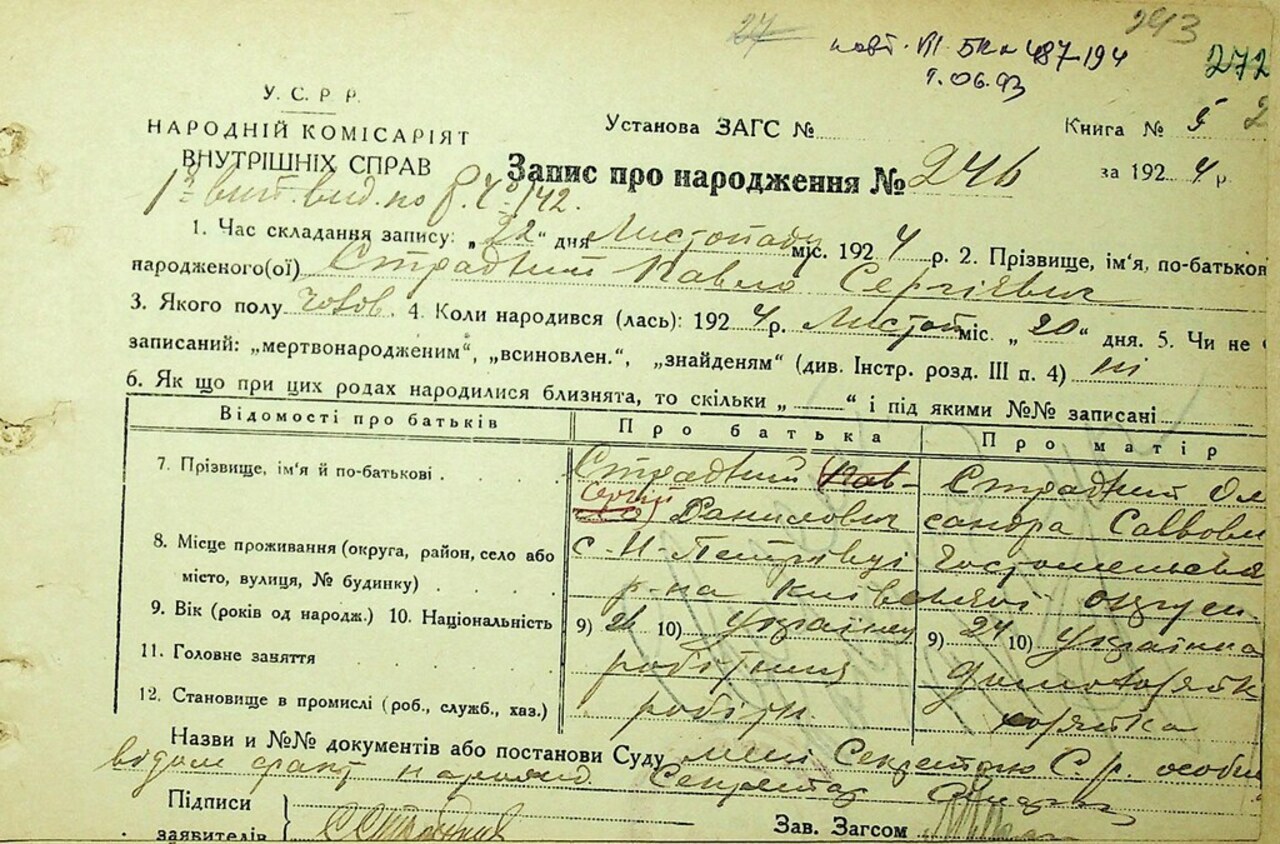 27 293
повт. VII БК № 487194 272
9.06.93
У. С. Р. Р.
НАРОДНІЙ КОМІСАРІЯТ
ВНУТРІШНІХ СПРАВ
Установа ЗАГС №
Книга № 5 2
Запис про народження № 246
за 1924 р.
1. Час складання запису: „22“ дня Листопаду міс. 1924 р. 2. Прізвище, ім'я, по-батькові
народженого(ої) Страдний Павло Сергієвич
3. Якого полу чолов. 4. Коли народився (лась): 1924 р. Листоп міс. „20“ дня. 5. Чи не
записаний: „мертвонародженим“, „всиновлен.“, „знайденям“ (див. Інстр. розд. III п. 4) ні
6. Як що при цих родах народилися близнята, то скільки „ “ і під якими №№ записані
Відомості про батьків Про батька Про матір
7. Прізвище, ім'я й по-батькові Страдний Пав- Страдний Оле
Сергій Данилович сандра Саввовн
8. Місце проживання (округа, район, село або с. Н-Петрівці Гостомельськ
місто, вулиця, № будинку) р-на Київської округи
9. Вік (років од народж.) 10. Національність 9) 26 10) Українец 9) 24 10) Українка
11. Головне заняття робітник домогосряйк
12. Становище в промислі (роб., служб., хаз.) робітн. хазяйка
Назви и №№ документів або постанови Суду мені Секретарю С. р. особи
відом факт народж. Секретар
Підписи
заявителів
Зав. Загсом